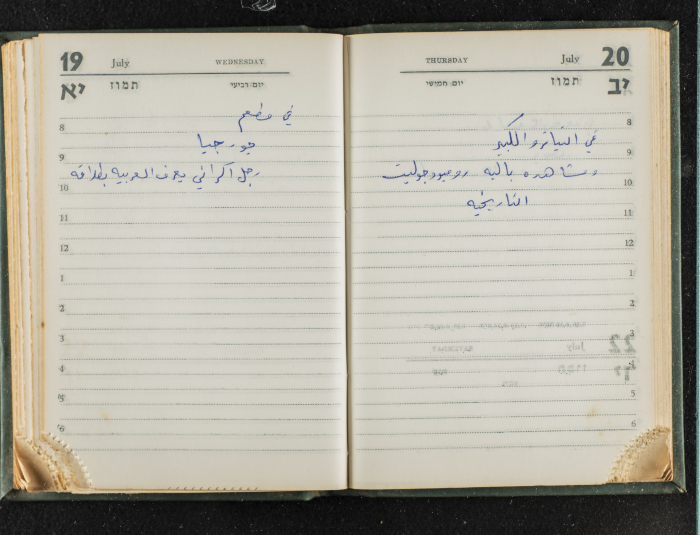 19 July WEDNESDAY
יא תמוז יום רביעי
8
في مطعم
جورجيا
9
رجل اكراني يعرف العربيه بطلاقه
10
11
12
1
2
3
4
5
6
THURSDAY July 20
יום חמישי תמוז יב
8
في التياترو الكبير
9
ومشاهده باليه روميو وجوليت
10
التاريخيه
11
12
1
2
3
4
5
6